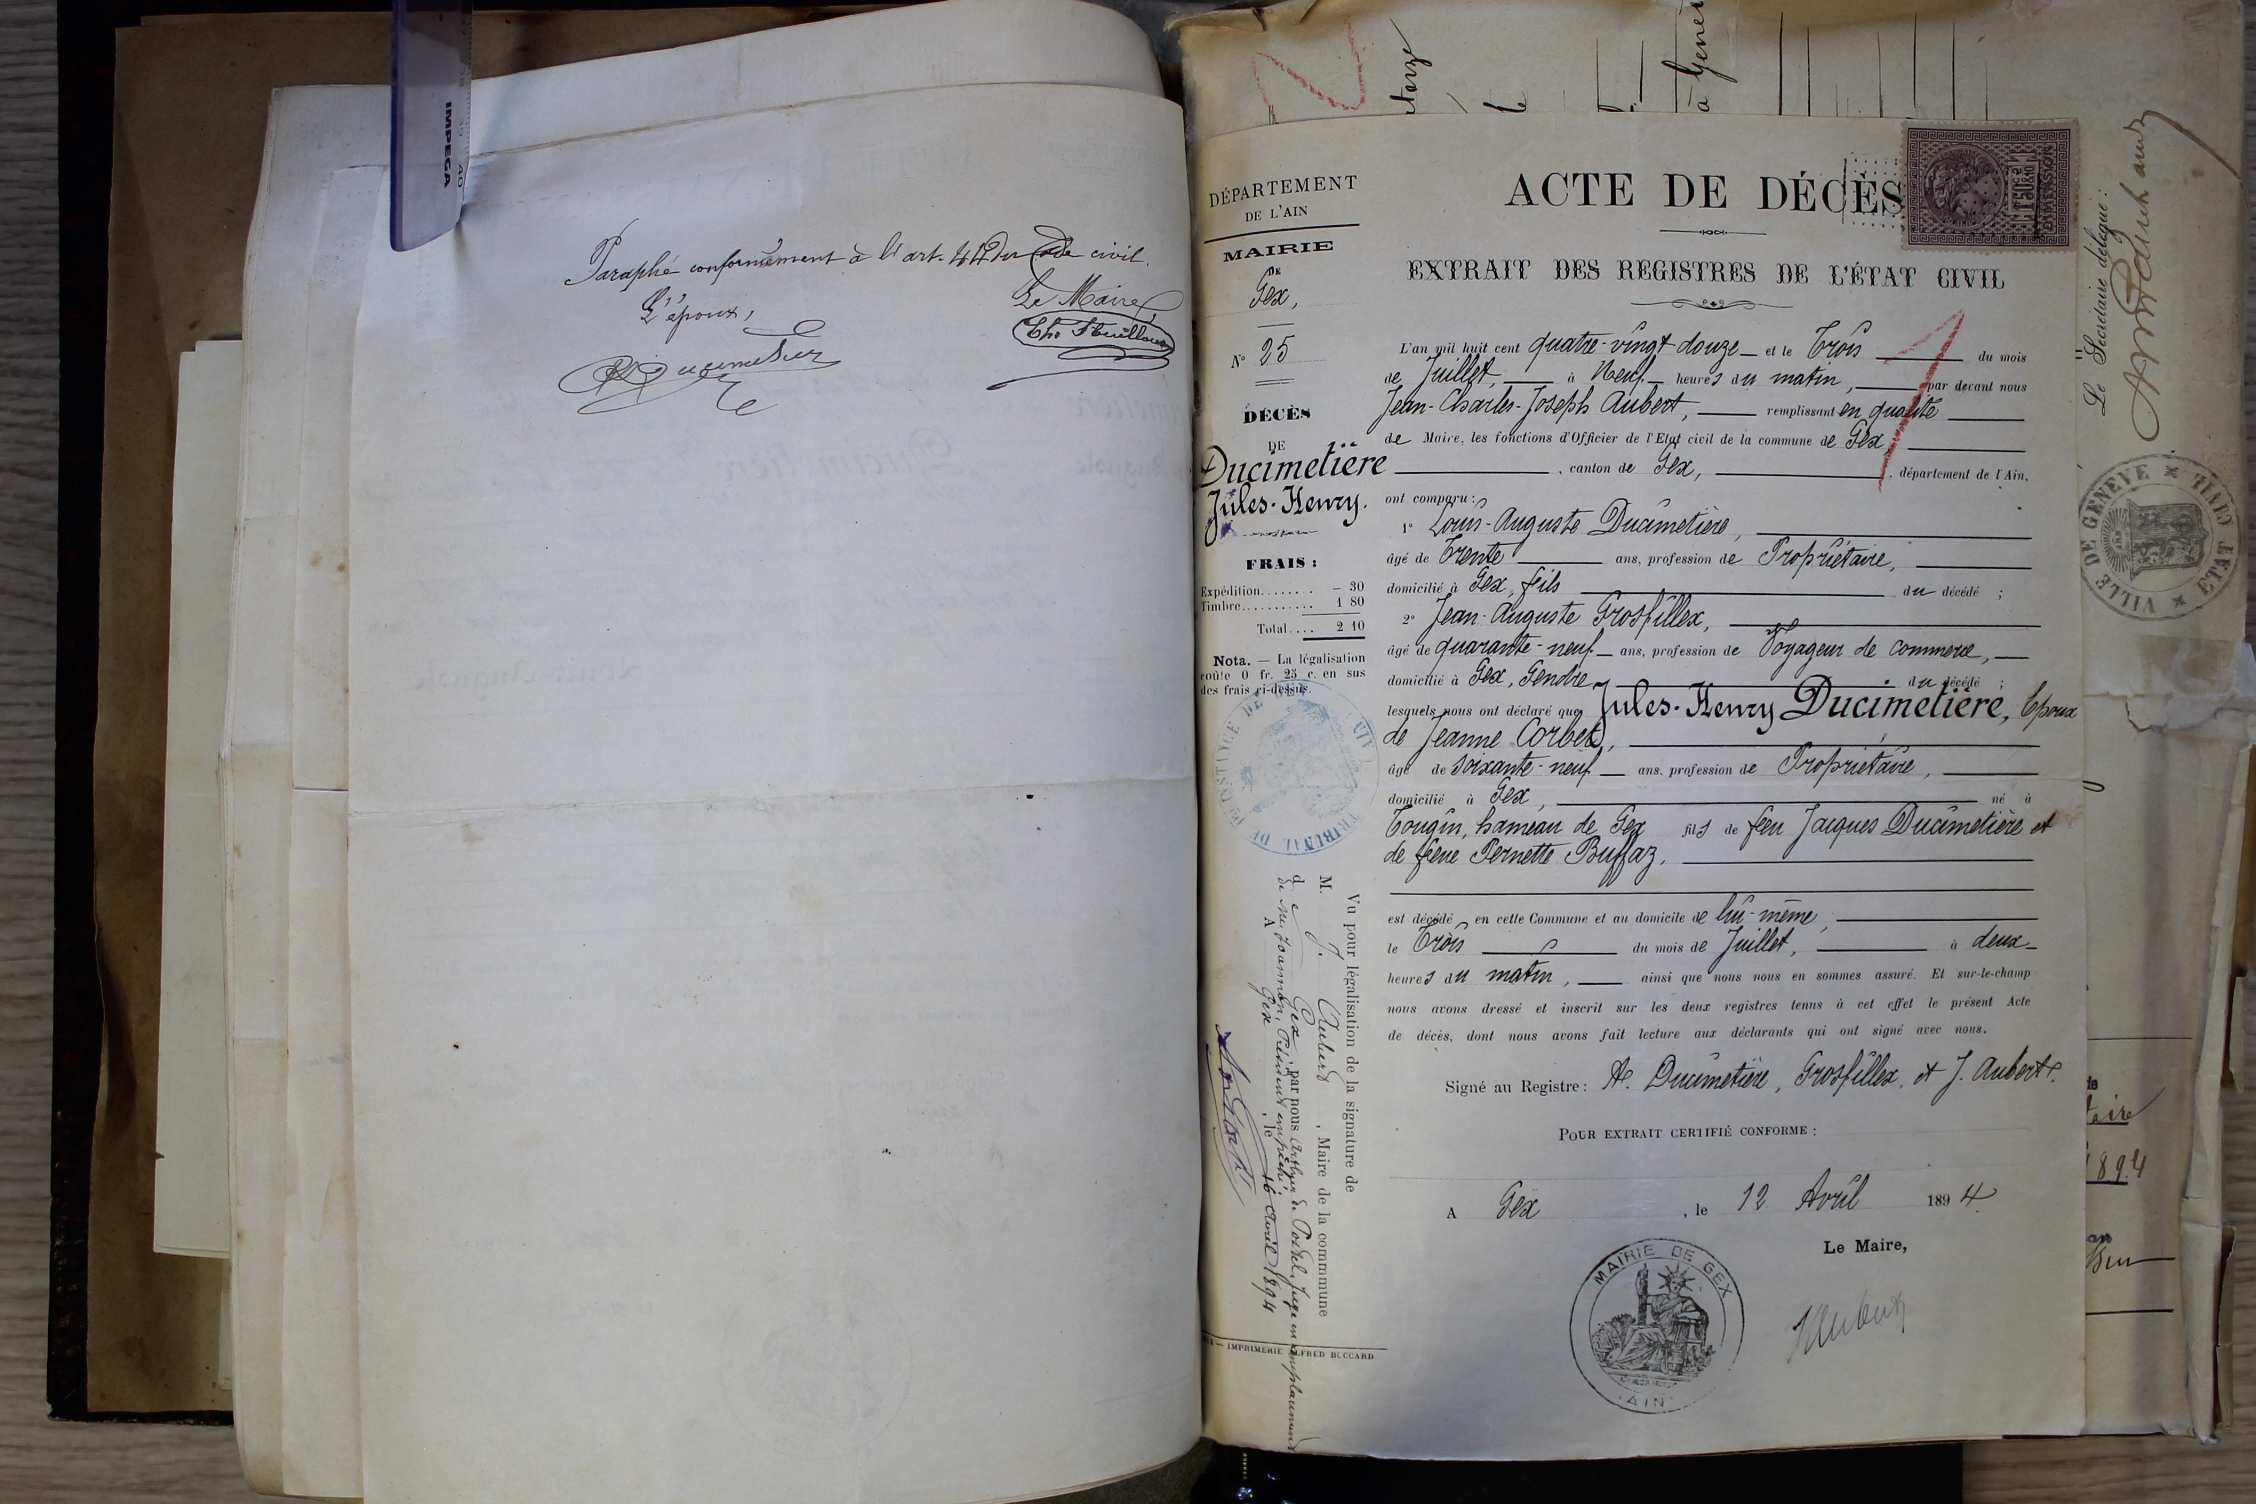 IMPEGA
40
Paraphé conformément à l'art. 44 du Code civil.
L'époux,
Le Maire,
Ducimetière
DÉPARTEMENT
DE L'AIN
MAIRIE
DE
Gex,
N° 25
DÉCÈS
DE
Ducimetière
Jules-Henry.
FRAIS :
Expédition........ – 30
Timbre........... 1 80
Total.... 2 10
Nota. — La légalisation
coûte 0 fr. 25 c. en sus
des frais ci-dessus.
Vu pour légalisation de la signature de
M. J. Aubert, Maire de la commune
de Gex, par nous Arthur de Postel, Juge en remplacement
de Mr. Jeannin, Président empêché.
A Gex, le 16 Avril 1894
IMPRIMERIE ALFRED BUCCARD
ACTE DE DÉCÈS
EXTRAIT DES REGISTRES DE L'ÉTAT CIVIL
L'an mil huit cent quatre-vingt douze et le Trois du mois
de Juillet, à Neuf heures du matin, par devant nous
Jean-Charles-Joseph Aubert, remplissant en qualité
de Maire, les fonctions d'Officier de l'Etat civil de la commune de Gex
, canton de Gex, , département de l'Ain,
ont comparu :
1° Louis-Auguste Ducimetière,
âgé de Trente ans, profession de Propriétaire,
domicilié à Gex, fils du décédé ;
2° Jean-Auguste Grosfillex,
âgé de quarante-neuf ans, profession de Voyageur de commerce,
domicilié à Gex, Gendre du décédé ;
lesquels nous ont déclaré que Jules-Henry Ducimetière, Epoux
de Jeanne Corbet,
âgé de soixante-neuf ans, profession de Propriétaire,
domicilié à Gex, né à
Tougin, hameau de Gex fils de feu Jacques Ducimetière et
de feue Pernette Buffaz,
est décédé en cette Commune et au domicile de lui-même,
le Trois du mois de Juillet, à deux
heures du matin, ainsi que nous nous en sommes assuré. Et sur-le-champ
nous avons dressé et inscrit sur les deux registres tenus à cet effet le présent Acte
de décès, dont nous avons fait lecture aux déclarants qui ont signé avec nous.
Signé au Registre : A. Ducimetière, Grosfillex, et J. Aubert.
POUR EXTRAIT CERTIFIÉ CONFORME :
A Gex, le 12 Avril 1894
Le Maire,
J Aubert
MAIRIE DE GEX
AIN
à Genève
Le Secrétaire délégué :
VILLE DE GENÈVE
ETAT CIVIL